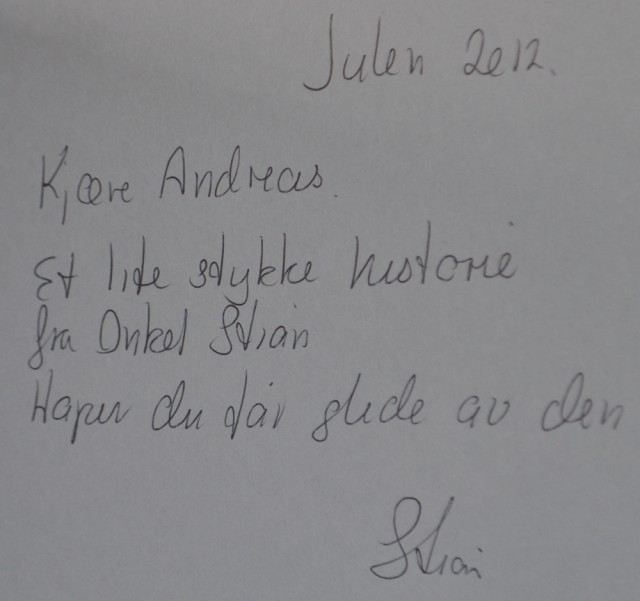 Julen 2012.
Kjære Andreas.
Et lite stykke historie
fra Onkel Stian
Håper du får glede av den
Stian